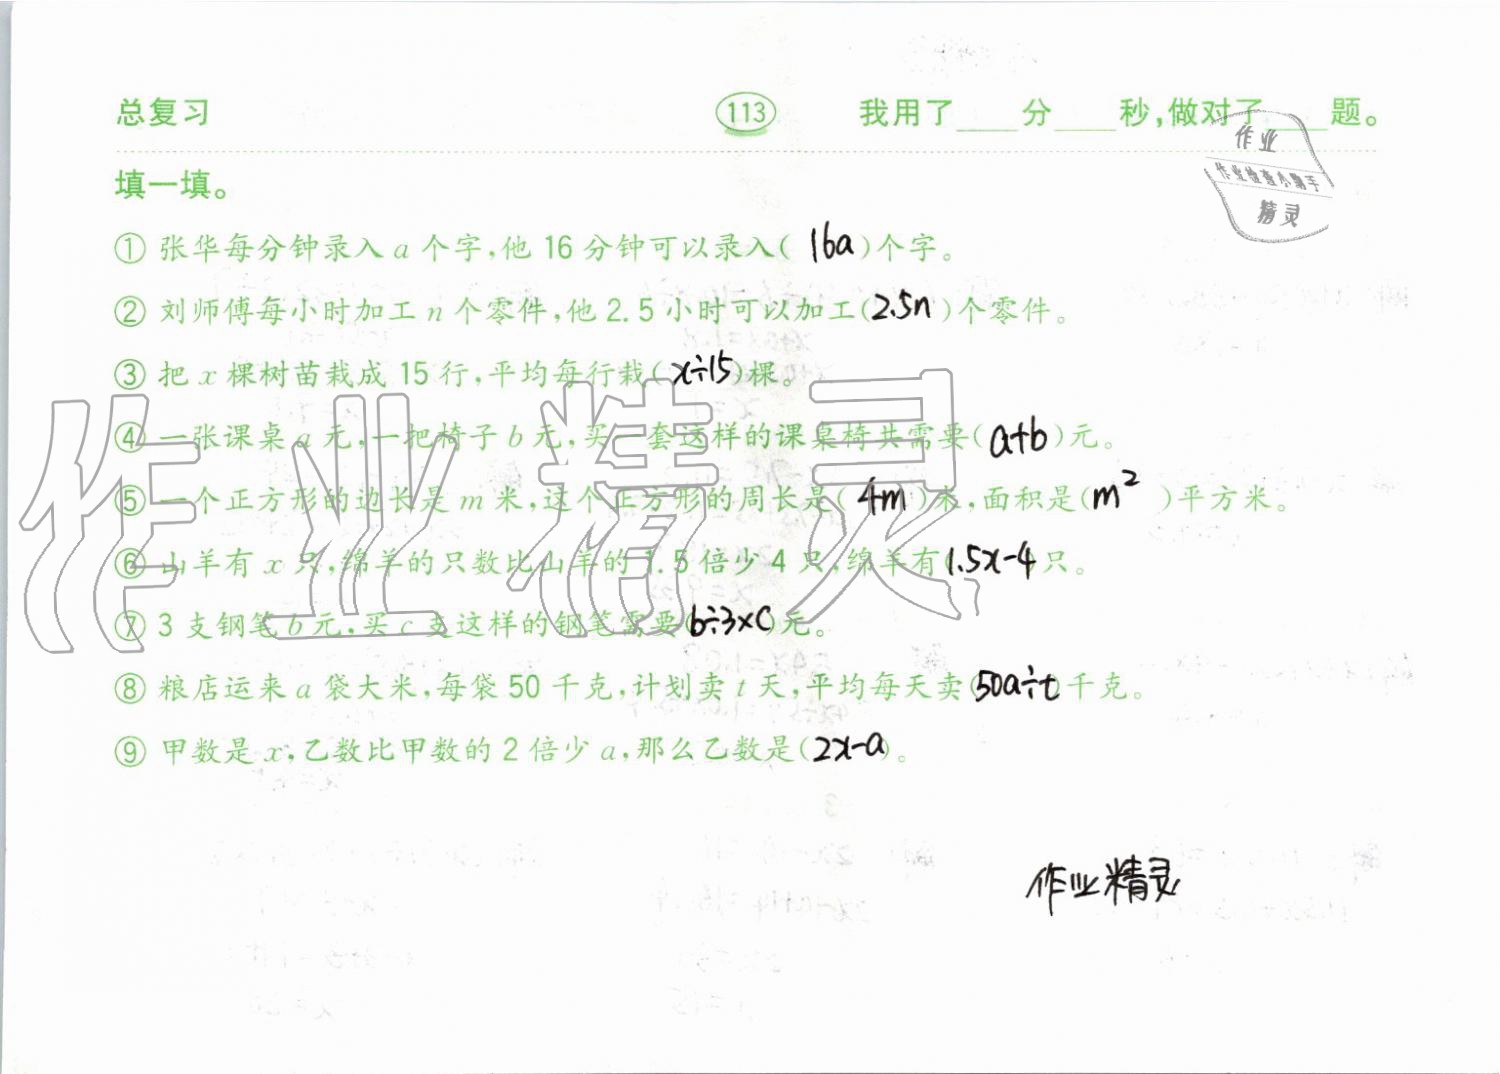 总复习 113 我用了____分____秒,做对了____题。
作业
作业检查小助手
精灵
填一填。
① 张华每分钟录入 a 个字,他 16 分钟可以录入( 16a )个字。
② 刘师傅每小时加工 n 个零件,他 2.5 小时可以加工(2.5n)个零件。
③ 把 x 棵树苗栽成 15 行,平均每行栽( x÷15 )棵。
④ 一张课桌 a 元,一把椅子 b 元,买一套这样的课桌椅共需要( a+b )元。
⑤ 一个正方形的边长是 m 米,这个正方形的周长是( 4m )米,面积是( m² )平方米。
⑥ 山羊有 x 只,绵羊的只数比山羊的 1.5 倍少 4 只,绵羊有(1.5x-4)只。
⑦ 3 支钢笔 b 元,买 c 支这样的钢笔需要(b÷3×c)元。
⑧ 粮店运来 a 袋大米,每袋 50 千克,计划卖 t 天,平均每天卖(50a÷t)千克。
⑨ 甲数是 x,乙数比甲数的 2 倍少 a,那么乙数是(2x-a)。
作业精灵
作业精灵